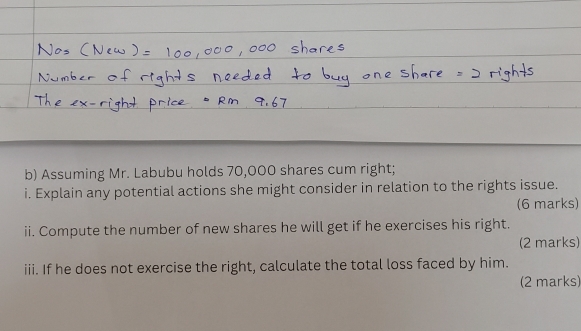 Nos (New) = 100,000,000 shares
Number of rights needed to buy one share = 2 rights
The ex-right price = RM 9.67
b) Assuming Mr. Labubu holds 70,000 shares cum right;
i. Explain any potential actions she might consider in relation to the rights issue.
(6 marks)
ii. Compute the number of new shares he will get if he exercises his right.
(2 marks)
iii. If he does not exercise the right, calculate the total loss faced by him.
(2 marks)